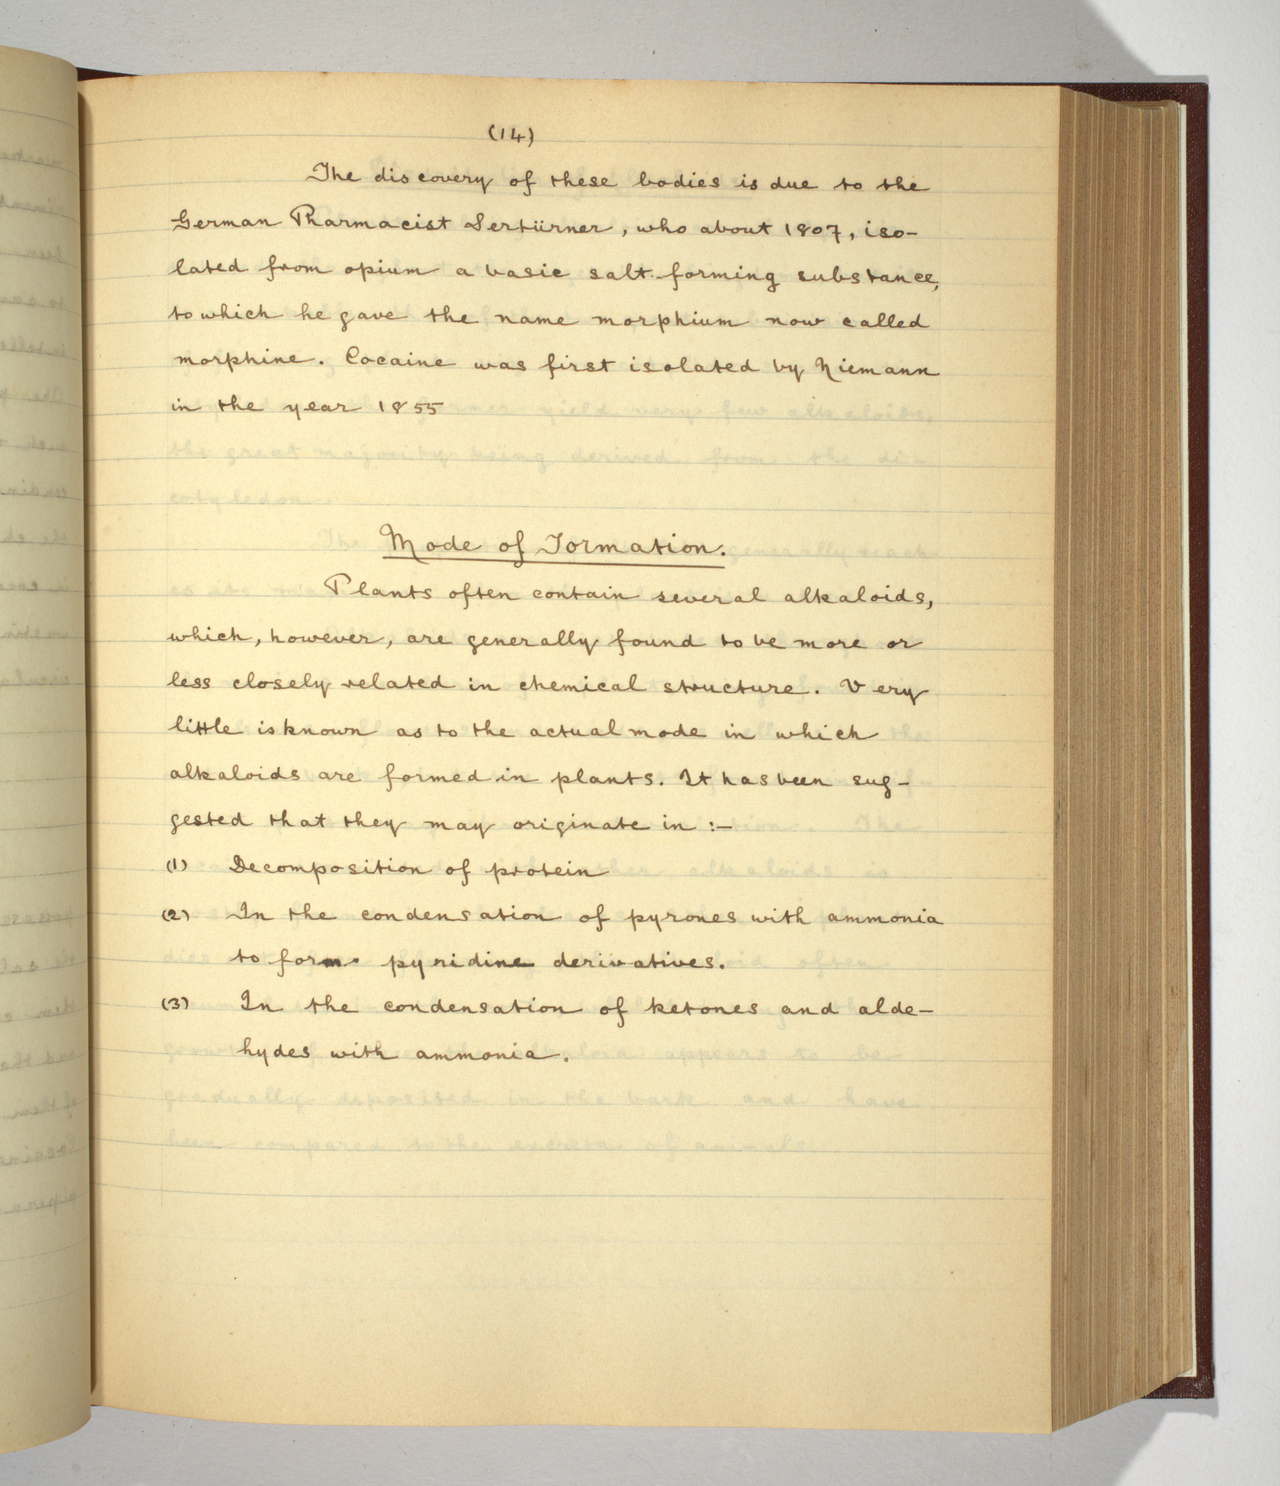 (14)
The discovery of these bodies is due to the
German Pharmacist Sertürner, who about 1807, iso-
lated from opium a basic salt-forming substance,
to which he gave the name morphium now called
morphine. Cocaine was first isolated by Niemann
in the year 1855
Mode of Formation.
Plants often contain several alkaloids,
which, however, are generally found to be more or
less closely related in chemical structure. Very
little is known as to the actual mode in which
alkaloids are formed in plants. It has been sug-
gested that they may originate in :-
(1) Decomposition of protein
(2) In the condensation of pyrones with ammonia
to form pyridine derivatives.
(3) In the condensation of ketones and alde-
hydes with ammonia.